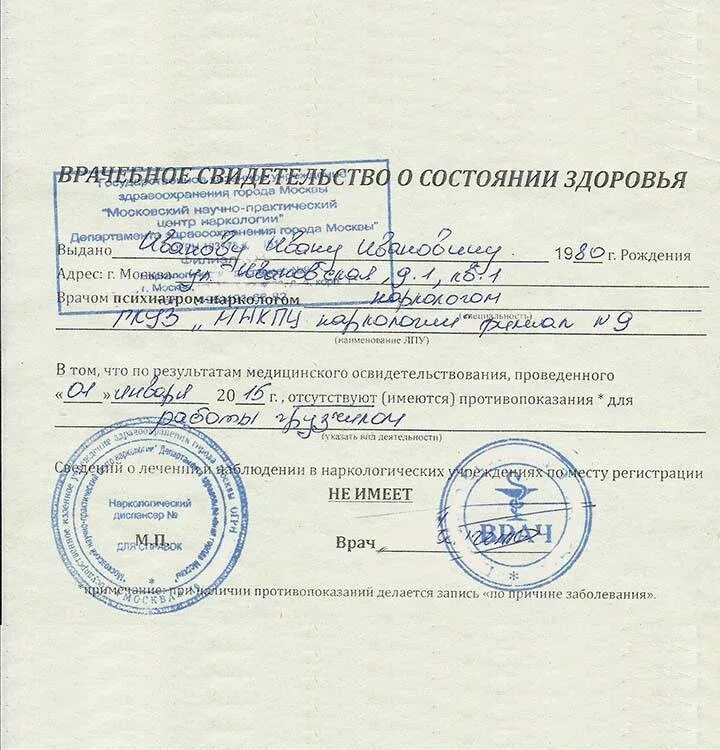 ВРАЧЕБНОЕ СВИДЕТЕЛЬСТВО О СОСТОЯНИИ ЗДОРОВЬЯ
Государственное казенное учреждение
здравоохранения города Москвы
"Московский научно-практический
центр наркологии"
Департамента здравоохранения города Москвы"
Филиал
Выдано Иванову Ивану Ивановичу 1980 г. Рождения
Адрес: г. Москва ул. Ивановская, д.1, кв.1
г. Москва
Врачом психиатром-наркологом наркологом
(специальность)
ГКУЗ „МНПЦ наркологии филиал №9
(наименование ЛПУ)
В том, что по результатам медицинского освидетельствования, проведенного
«01» января 2016 г., отсутствуют (имеются) противопоказания * для
работы грузчиком
(указать вид деятельности)
Сведений о лечении и наблюдении в наркологических учреждениях по месту регистрации
НЕ ИМЕЕТ
Наркологический
диспансер №
М.П.
ДЛЯ СПРАВОК
* МОСКВА *
Врач
ВРАЧ
*примечание: при наличии противопоказаний делается запись «по причине заболевания».